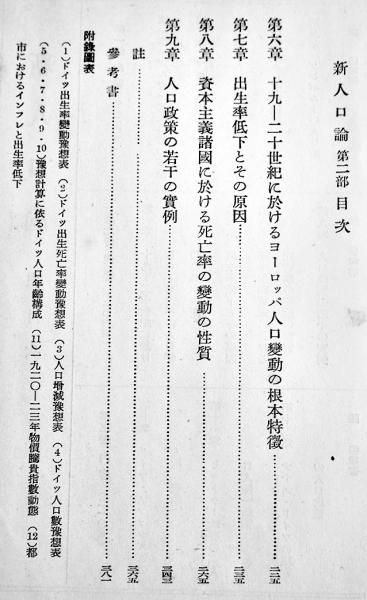 新人口論 第二部 目次
第六章 十九―二十世紀に於けるヨーロッパ人口變動の根本特徵……二一五
第七章 出生率低下とその原因……二三五
第八章 資本主義諸國に於ける死亡率の變動の性質……二六五
第九章 人口政策の若干の實例……三四三
註……三六五
參考書……三八一
附錄圖表
(1)ドイツ出生率變動豫想表 (2)ドイツ出生死亡率變動豫想表 (3)人口增減豫想表 (4)ドイツ人口數豫想表
(5・6・7・8・9・10)豫想計算に依るドイツ人口年齡構成 (11)一九二〇―二三年物價騰貴指數動態 (12)都
市におけるインフレと出生率低下